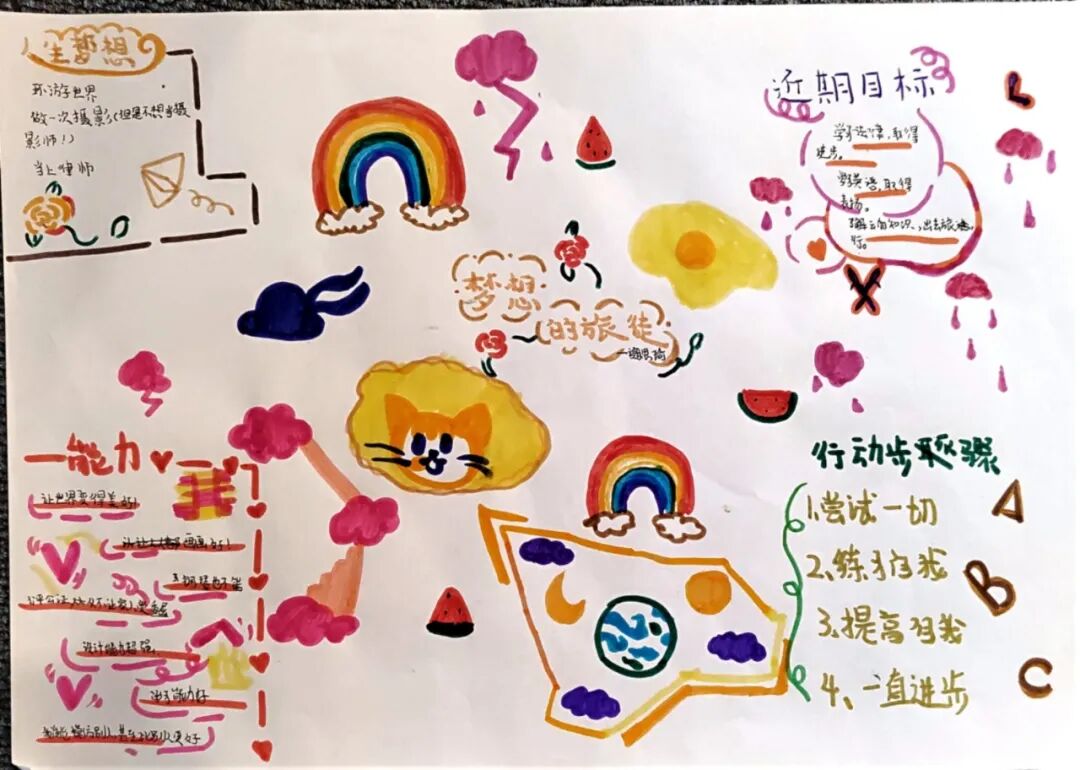 人生梦想
环游世界
做一次摄影(但是不想当摄
影师!)
当上律师
近期目标
学习法律,取得
进步。
学英语,取得
表扬。
知识,出去旅
行。
L
X
梦想
的旅徒
一能力
让世界变得美好!
画画好!
设计能力超强
动手能力好
行动步骤
1.尝试一切
2、练习自我
3、提高自我
4、一直进步
A
B
C